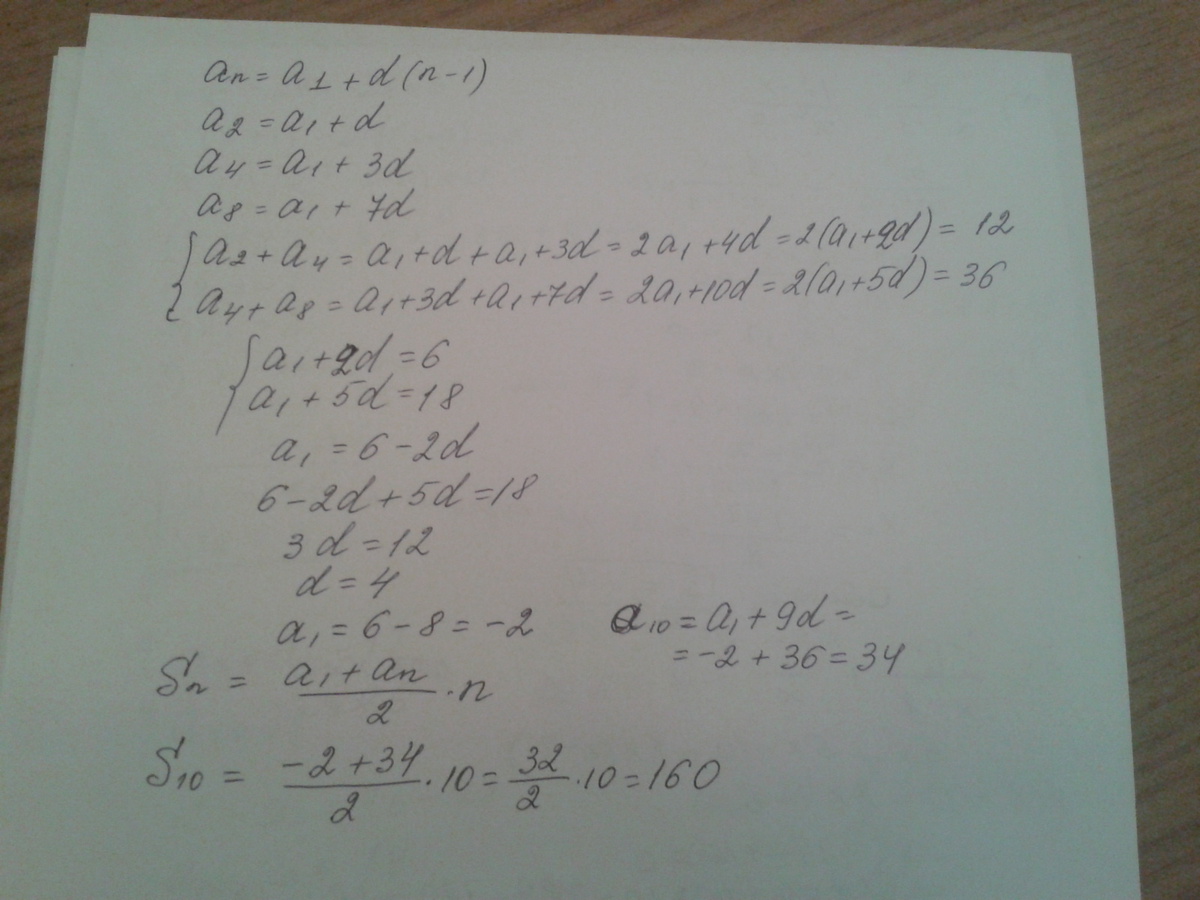 an = a1 + d(n-1)
a2 = a1 + d
a4 = a1 + 3d
a8 = a1 + 7d
a2 + a4 = a1 + d + a1 + 3d = 2a1 + 4d = 2(a1 + 2d) = 12
a4 + a8 = a1 + 3d + a1 + 7d = 2a1 + 10d = 2(a1 + 5d) = 36
a1 + 2d = 6
a1 + 5d = 18
a1 = 6 - 2d
6 - 2d + 5d = 18
3d = 12
d = 4
a1 = 6 - 8 = -2
a10 = a1 + 9d =
= -2 + 36 = 34
Sn = (a1 + an)/2 · n
S10 = (-2 + 34)/2 · 10 = 32/2 · 10 = 160